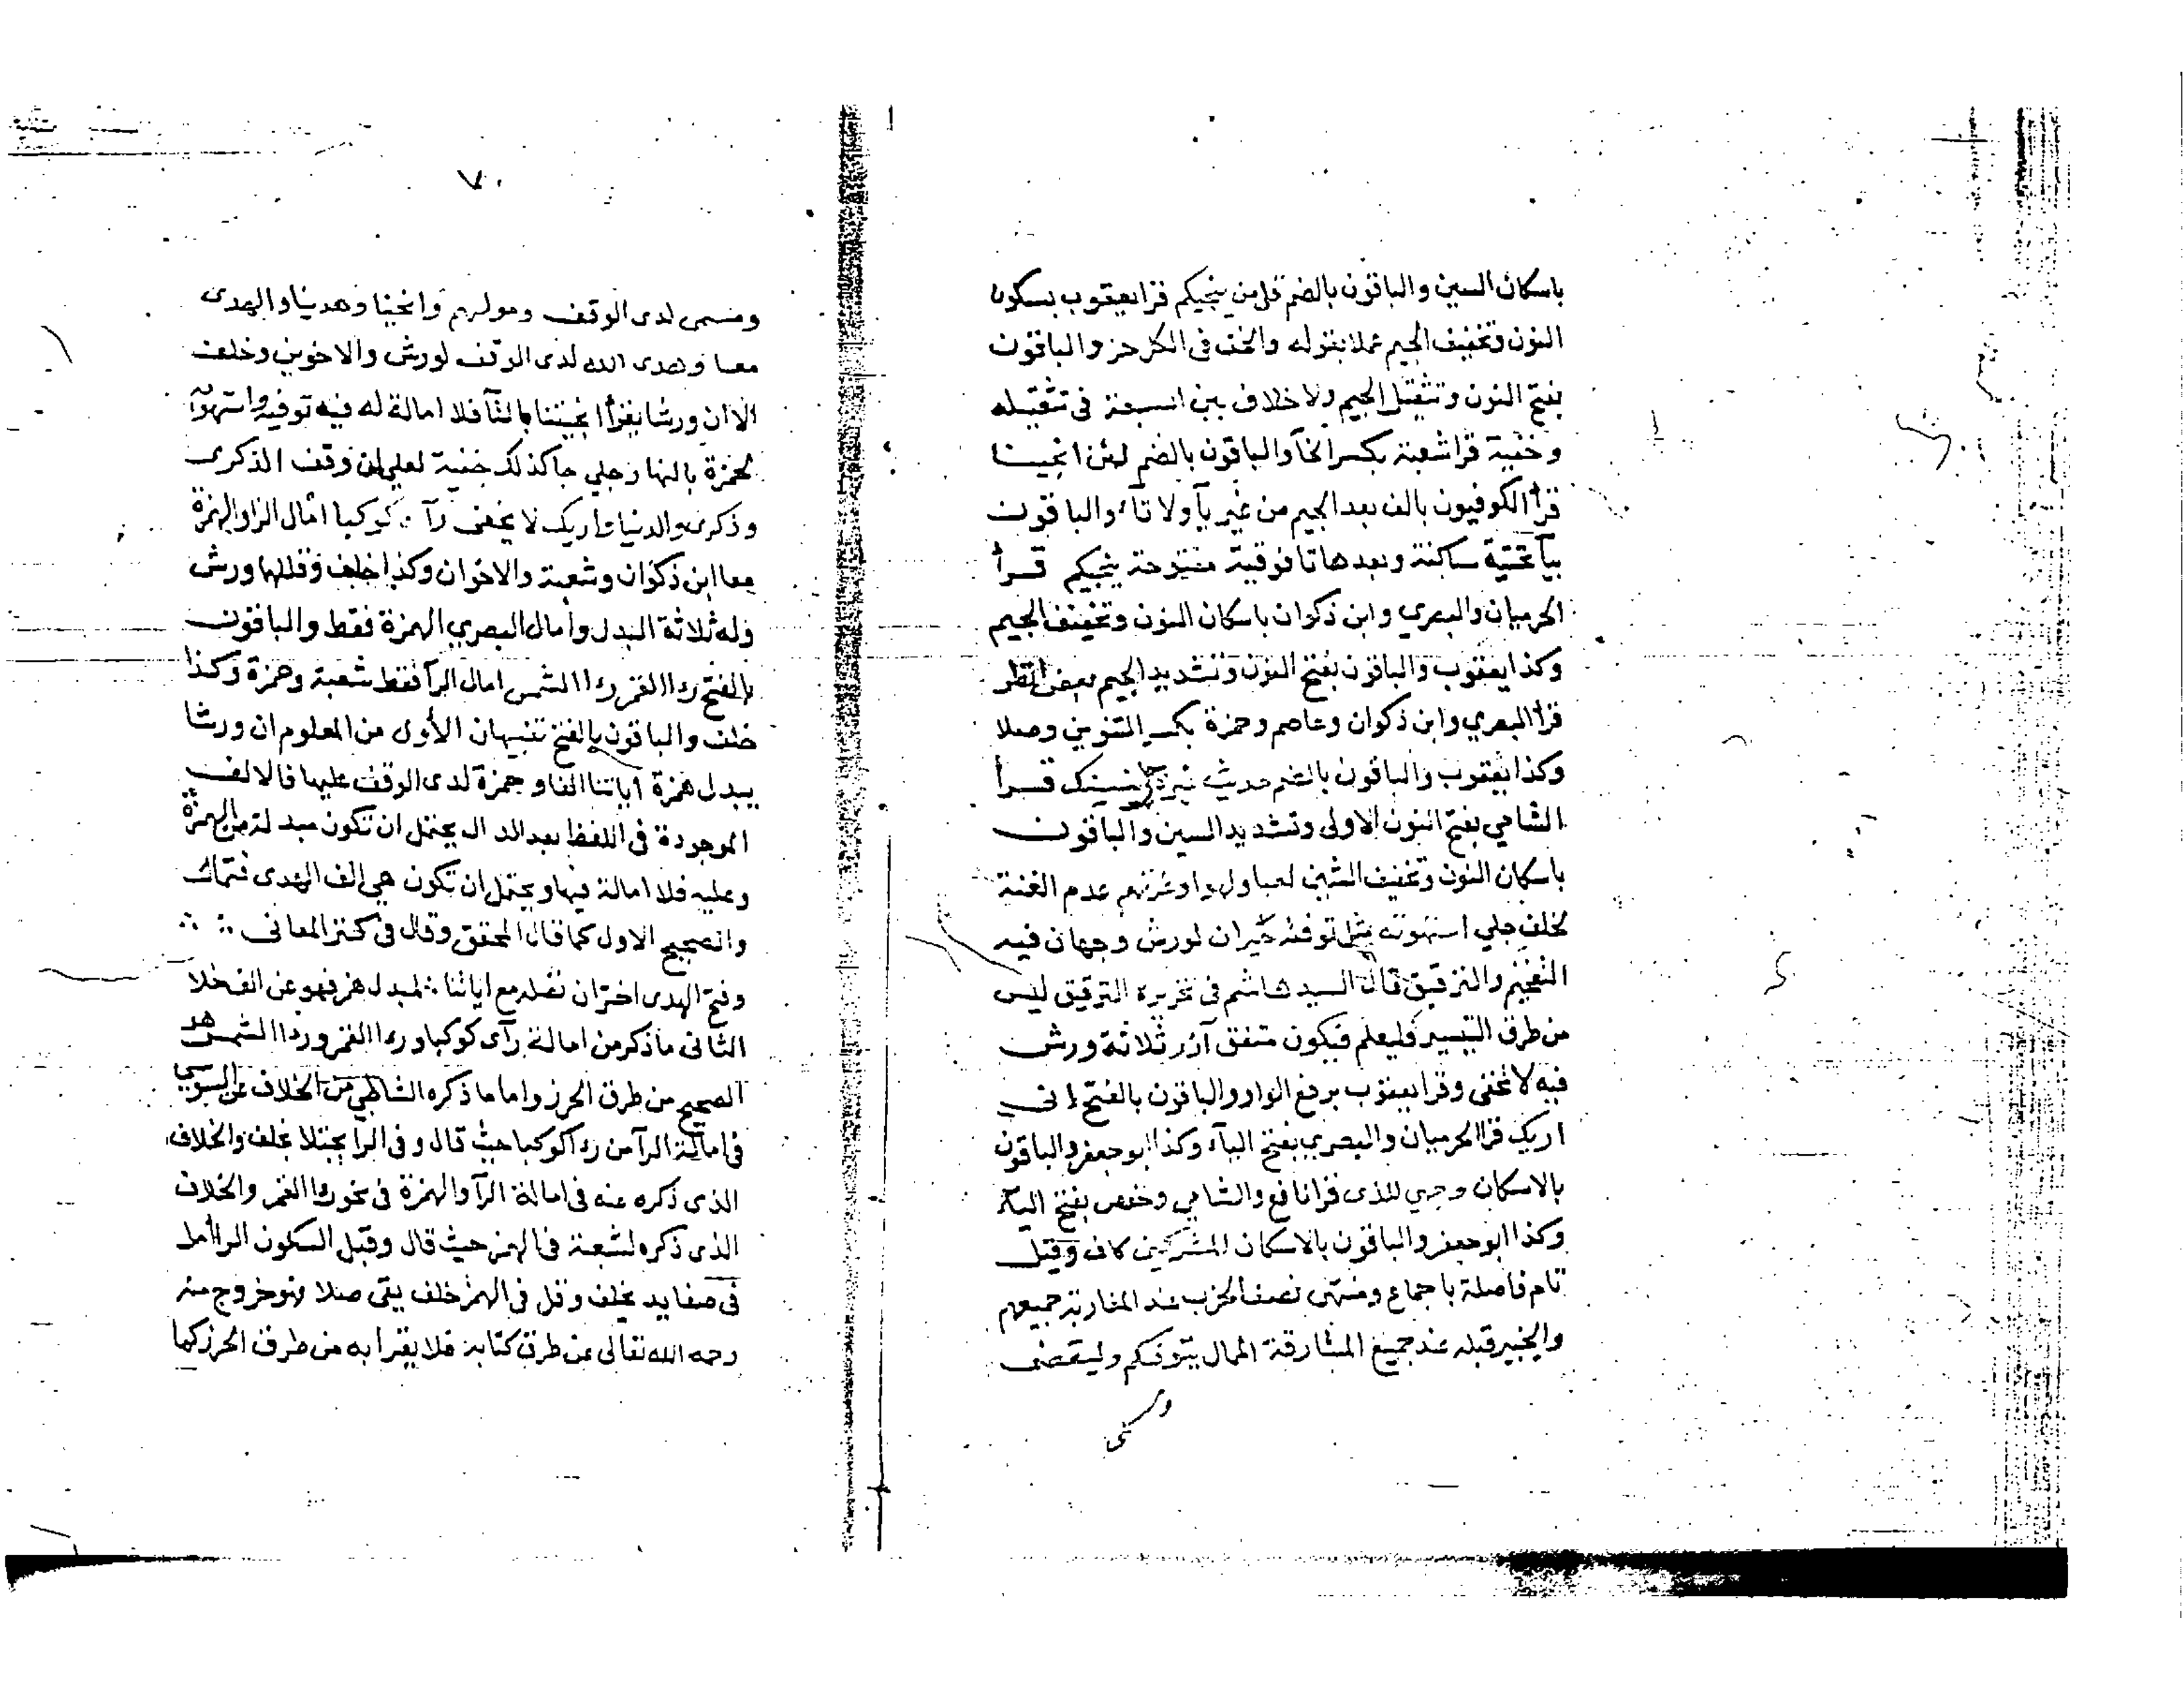 باسكان السين والباقون بالضم قل من ينجيكم قرا يعقوب بسكون
النون وتخفيف الجيم عملا بقوله والخف في الكل حز والباقون
بفتح النون وتثقيل الجيم ولا خلاف بين السبعة في تثقيله
وخفية قرا شعبة بكسر الخآ والباقون بالضم لئن انجيتنا
قرأ الكوفيون بالف بعد الجيم من غير يآ ولا تآء والباقون
بيآ تحتية ساكنة وبعدها تا فوقية مفتوحة ينجيكم قرأ
الحرميان والبصري وابن ذكوان باسكان النون وتخفيف الجيم
وكذا يعقوب والباقون بفتح النون وتشديد الجيم بعض انظر
قرأ البصري وابن ذكوان وعاصم وحمزة بكسر التنوين وصلا
وكذا يعقوب والباقون بالضم حديث غيره ينسينك قرأ
الشامي بفتح النون الاولى وتشديد السين والباقون
باسكان النون وتخفيف السين لعبا ولهوا وغرتهم عدم الغنة
لخلف جلي استهوته مثل توفته حيران لورش وجهان فيه
التفخيم والترقيق قال السيد هاشم في تحريره الترقيق ليس
من طرق التيسير فليعلم فيكون متفق آزر ثلاثة ورش
فيه لا تخفى وقرا يعقوب برفع الوار والباقون بالفتح اني
اريك قرا الحرميان والبصري بفتح اليآء وكذا ابو جعفر والباقون
بالاسكان وجهي للذى قرا نافع والشامي وحفص بفتح اليآء
وكذا ابو جعفر والباقون بالاسكان المشركين كاف وقيل
تام فاصلة باجماع ومنتهى نصف الحزب عند المغاربة جميعهم
والخبير قبله عند جميع المشارقة الممال يتوفيكم وليقضى
ومسمى لدى الوقف ومولهم وانجينا وهدينا والهدى
معا وهدى الله لدى الوقف لورش والاخوين وخلف
الا ان ورشا يقرأ انجيتنا بالتآ فلا امالة له فيه توفيه واستهوته
لحمزة بالنهار جلي جا كذلك خفية لعلي ان وقف الذكرى
وذكرى والدنيا واريك لا يخفى رآ كوكبا امال الرا والهمزة
معا ابن ذكوان وشعبة والاخوان وكذا خلف وقللها ورش
وله ثلاثة البدل وأمال البصري الهمزة فقط والباقون
بالفتح رءا القمر رءا الشمس امال الرآ فقط شعبة وحمزة وكذا
خلف والباقون بالفتح تنبيهان الأول من المعلوم ان ورشا
يبدل همزة اياتنا الفا وحمزة لدى الوقف عليها فالالف
الموجودة في اللفظ بعد الدال يحتمل ان تكون مبدلة من الهمزة
وعليه فلا امالة فيها ويحتمل ان تكون هي الف الهدى فتمال
والصحيح الاول كما قال المحقق وقال في كنز المعاني
وفتح الهدى اختر ان تصله مع اياتنا لمبدل همز فهو عن الف خلا
الثاني ما ذكر من امالة رآى كوكبا ورءا القمر ورءا الشمس هو
الصحيح من طرق الحرز واما ما ذكره الشاطبي من الخلاف عن السوسي
في امالة الرآ من رءا كوكبا حيث قال وفي الرا يجتلا بخلف والخلاف
الذى ذكره عنه في امالة الرآ والهمزة في نحو رءا القمر والخلاف
الذى ذكره لشعبة في الهمز حيث قال وقبل السكون الرا أمل
في صفا يد بخلف وقل في الهمز خلف يقى صلا فهو خروج منه
رحمه الله تعالى عن طرق كتابه فلا يقرا به من طرق الحرز كما